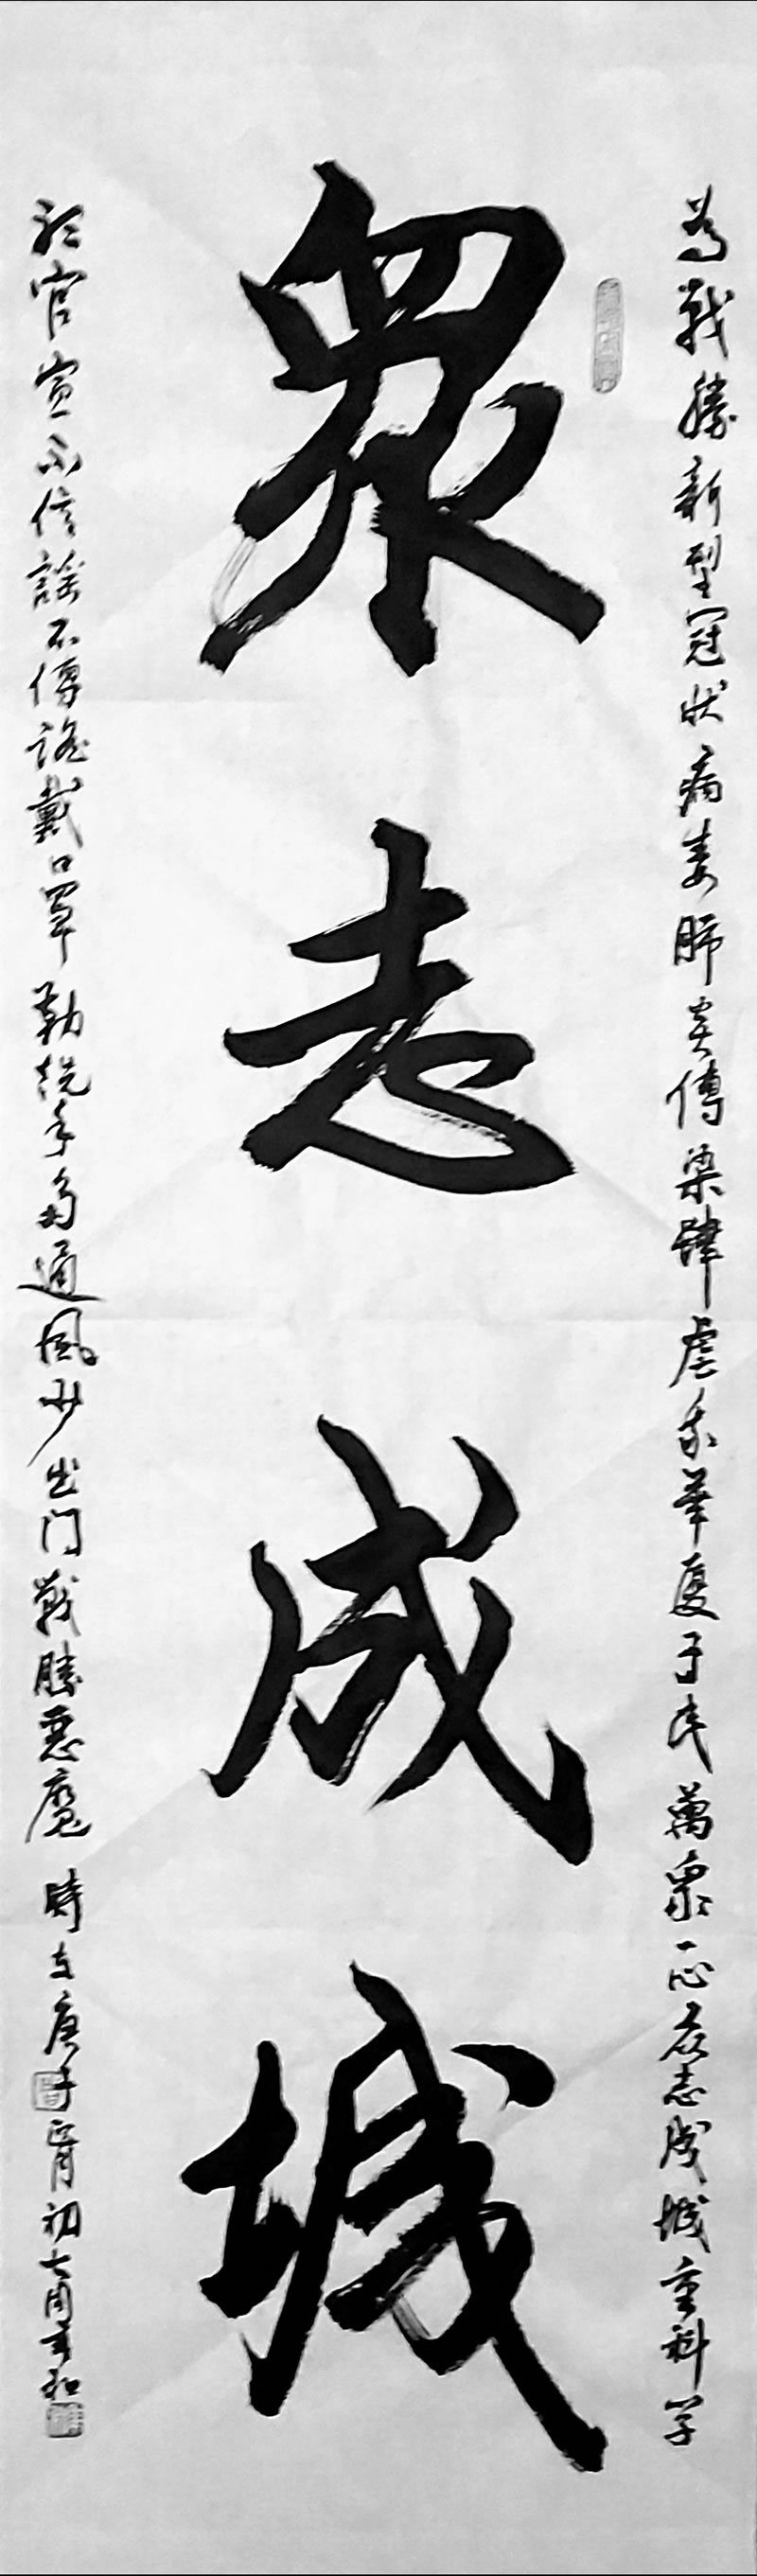 眾志成城
為戰勝新型冠狀病毒肺炎傳染肆虐我華夏子民萬衆一心众志成城重科学
聽官宣不信謠不傳謠戴口罩勤洗手多通風少出门戰勝惡魔 時在庚子正月初七周